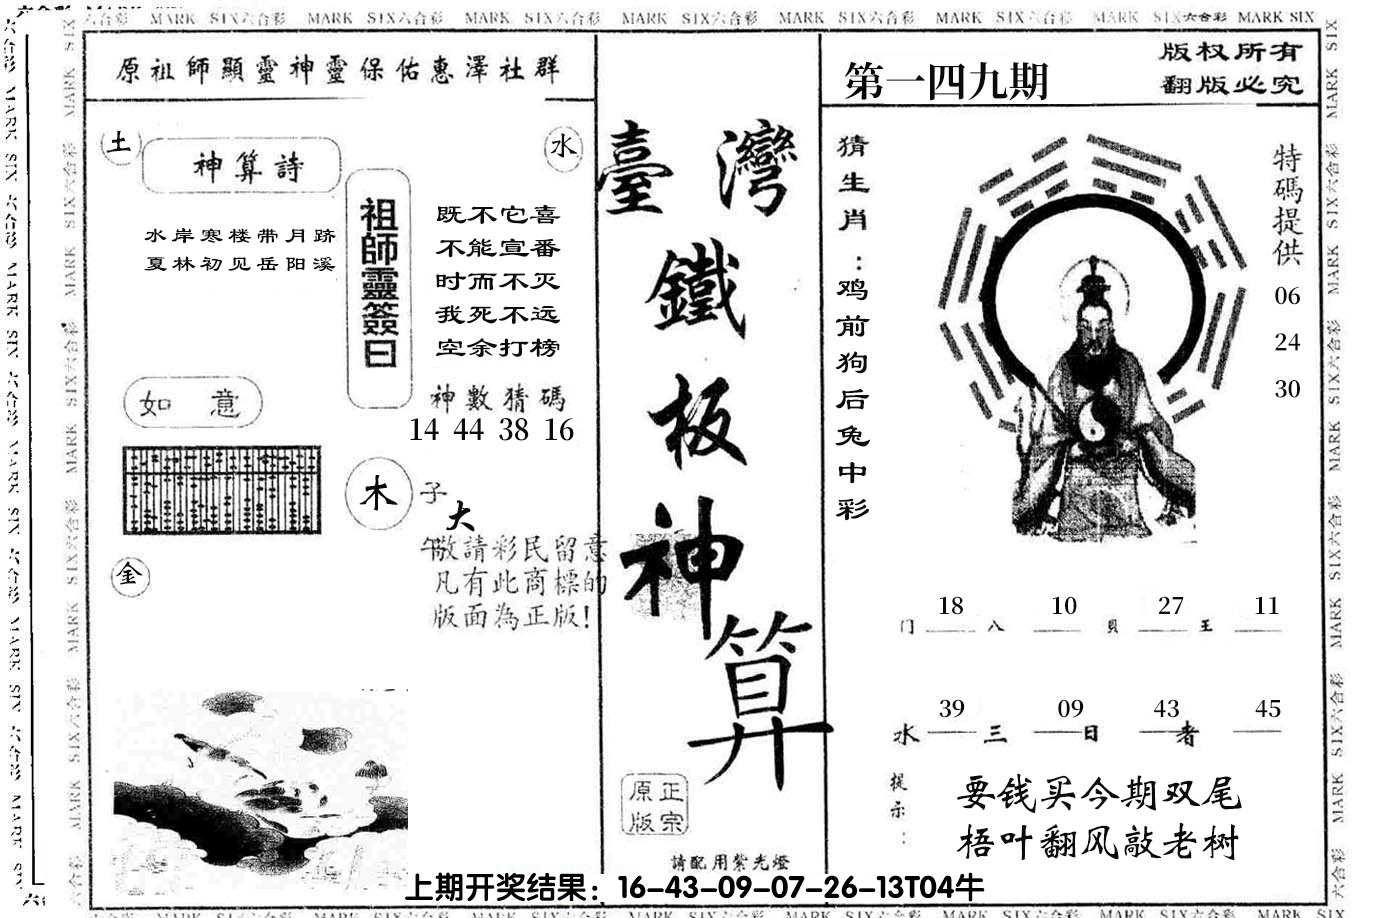 MARK SIX六合彩 MARK SIX六合彩 MARK SIX六合彩 MARK SIX六合彩 MARK SIX六合彩 MARK SIX六合彩 MARK SIX六合彩 MARK SIX
原祖師顯靈神靈保佑惠澤社群
土
水
神算詩
水岸寒楼带月跻
夏林初见岳阳溪
祖師靈簽曰
既不它喜
不能宣番
时而不灭
我死不远
空余打榜
神數猜碼
14 44 38 16
如意
木
子
大
午
金
敬請彩民留意
凡有此商標的
版面為正版!
臺灣
鐵
板
神
算
原版正宗
請配用紫光燈
第一四九期
版权所有
翻版必究
猜生肖:鸡前狗后兔中彩
特碼提供
06
24
30
18 10 27 11
门 八 貝 王
39 09 43 45
水 三 日 者
提示:
要钱买今期双尾
梧叶翻风敲老树
上期开奖结果：16-43-09-07-26-13T04牛